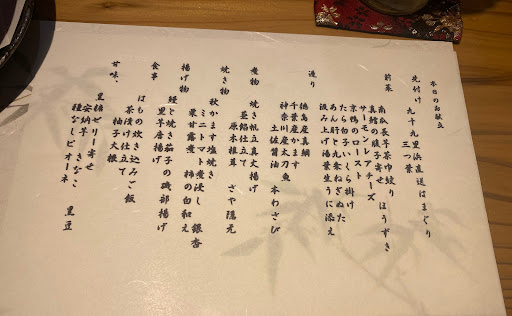 本日のお献立
先付け 九十九里浜直送はまぐり
三つ葉
前菜 南瓜長芋茶巾絞り ほうずき
真鱈の腹子寄せ
サーモンレアチーズ
京鴨のロースト
たら白子いくら掛け
あん肝と九条ねぎぬた
汲み上げ湯葉生うに添え
造り 徳島産真鯛
千葉産かます
神奈川産太刀魚
土佐醤油 本わさび
煮物 焼き帆立真丈揚げ
餡仕立て
原木椎茸 さや隠元
焼き物 秋かます塩焼き
ミニトマト蜜浸し 銀杏
栗甘露煮 柿の白和え
揚げ物 鰻と焼き茄子の磯部揚げ
里芋唐揚げ
食事 はもの炊き込みご飯
茶漬け仕立て
柚子大根
甘味、 黒糖ゼリー寄せ
安納芋 きなこ 黒豆
種なしピオーネ